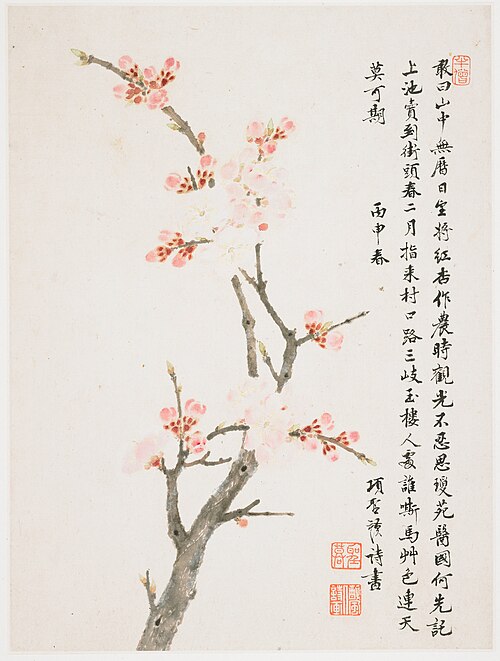 敢曰山中無曆日坐將紅杏作農時觀光不忍思瓊苑醫國何先記
上池賣到街頭春二月指來村口路三岐玉樓人處誰嘶馬艸色連天
莫可期 丙申春
項聖謨詩書